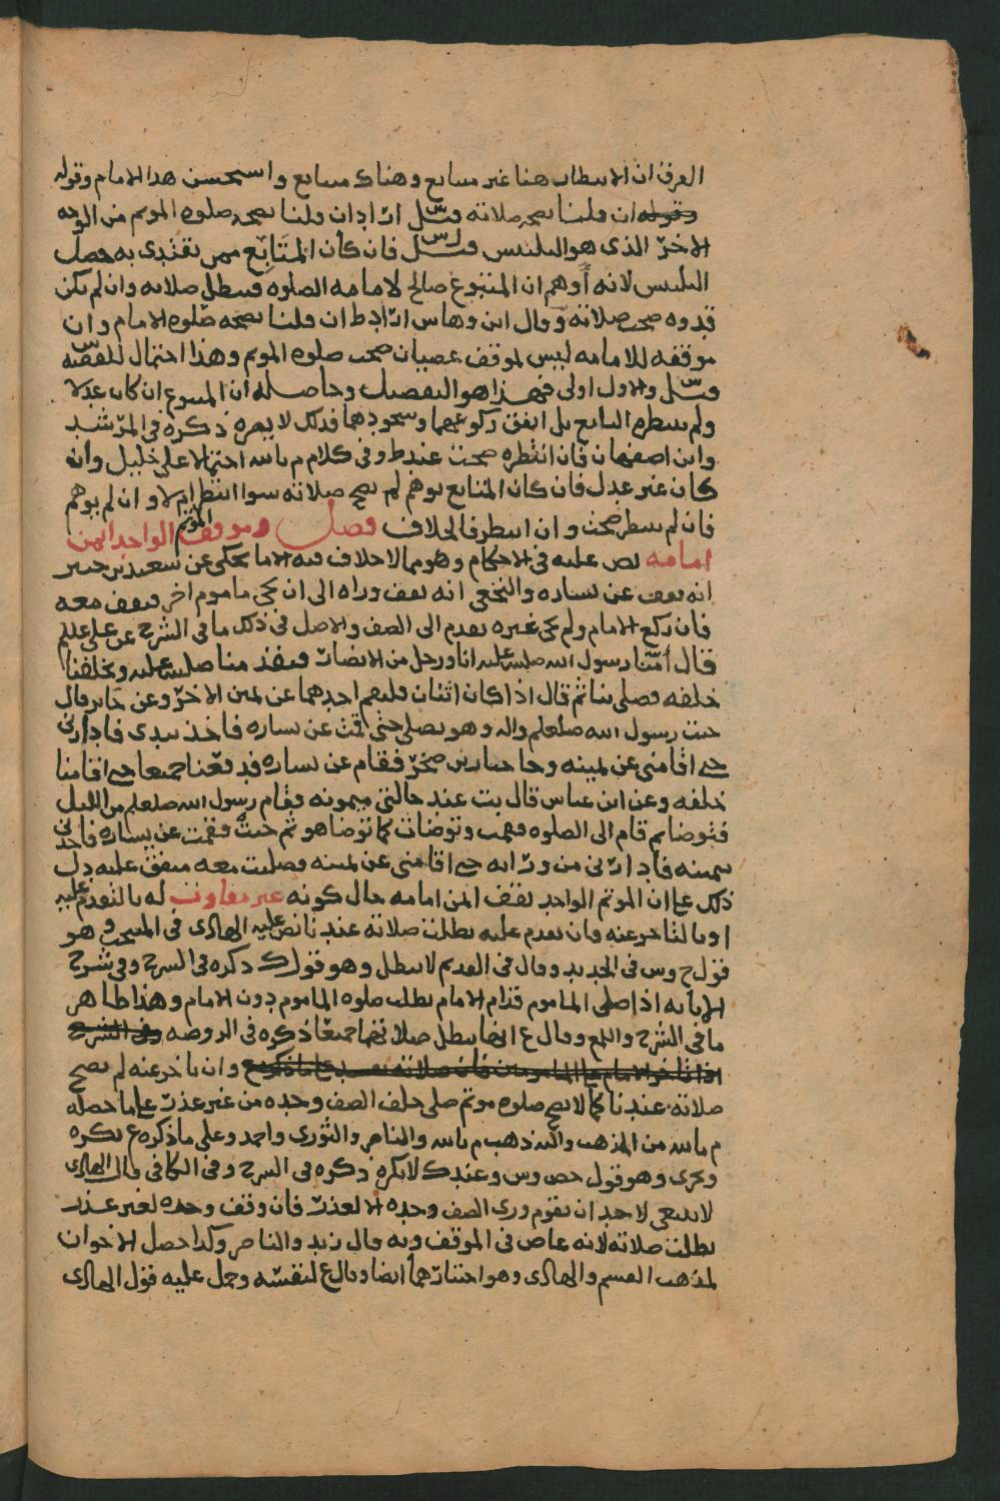 الفرق ان الانتظار هنا غير متابع وهناك متابع واستحسن هذا الامام وقوله
ان قلنا بصحة صلاته قيل اراد ان قلنا بصحه صلوه الموتم من الوجه
الاخر الذى هو التلبيس فان كان المتابع ممن يقتدى به حصل
التلبيس لانه أوهم ان المتبوع صالح للامامه الصلوه فتبطل صلاته وان لم يكن
قدوه صحت صلاته وقال ابن وهاس اراد ط ان قلنا بصحه صلوه الامام وان
موقفه للامامه ليس لموقف عصيان صحت صلوه الموتم وهذا احتمال
قيل والاول اولى فهذا هو التفصيل وحاصله ان المتبوع ان كان عدلا
ولم ينتظره التابع بل اتفق ركوعهما وسجودهما فذلك لا يضره ذكره فى المرشد
وابن اصفهان فان انتظره صحت عند ط وفى كلام م بالله احتمالا على خليل وان
كان غير عدل فان كان المتابع يوهم لم تصح صلاته سوا انتظر ام لا وان لم يوهم
فان لم ينتظر صحت وان انتظر فالخلاف فصل وموقف الموتم الواحد ايمن
امامه نص عليه فى الاحكام وهو مما لا خلاف فيه الا ما يحكى عن سعيد بن جبير
انه يقف عن يساره والنخعى انه يقف وراه الى ان يجى ماموم اخر فيقف معه
فان ركع الامام ولم يجى غيره تقدم الى الصف والاصل فى ذلك ما فى الشرح عن على عليلم
قال أمّنا رسول الله صلى الله عليه انا ورجل من الانصار فتقدمنا صلى الله عليه وتخلفنا
خلفه فصلى بنا ثم قال اذا كان اثنان فليقم احدهما عن يمين الاخر وعن جابر قال
جيت رسول الله صلعلم واله وهو يصلى حتى قمت عن يساره فاخذ بيدى فادارنى
حتى اقامنى عن يمينه وجا جبار بن صخر فقام عن يساره فدفعنا جميعا حتى اقامنا
خلفه وعن ابن عباس قال بت عند خالتى ميمونه فقام رسول الله صلعلم من الليل
فتوضا ثم قام الى الصلوه فقمت وتوضات كما توضا هو ثم جيت فقمت عن يساره فاخذنى
بيمينه فادارنى من ورائه حتى اقامنى عن يمينه فصليت معه متفق عليه دل
ذلك على ان الموتم الواحد يقف ايمن امامه حال كونه غير متقدم له بالتقدم عليه
او بالتاخر عنه فان تقدم عليه بطلت صلاته عندنا نص عليه الهادى فى المنتخب وهو
قول ح وس فى الجديد وقال فى القديم لا تبطل وهو قول ك ذكره فى الشرح وفى شرح
الابانه اذا صلى الماموم قدام الامام بطلت صلوه الماموم دون الامام وهذا ظاهر
ما فى الشرح واللمع وقال ع انها تبطل صلاتهما جميعا ذكره فى الروضه
وان تاخر عنه لم تصح
صلاته عندنا كما لا تصح صلوه موتم صلى خلف الصف وحده من غير عذر على ما حصله
م بالله من المذهب واليه ذهب م بالله والناصر والثورى واحمد وعلى ما ذكره ع يكره
ويجزى وهو قول حص وس وعند ك لا يكره ذكره فى الشرح وفى الكافى قال الهادى
لا ينبغى لاحد ان يقوم ورى الصف وحده الا لعذر فان وقف وحده لغير عذر
بطلت صلاته لانه عاص فى الموقف وبه قال زيد والناصر وكذا حصل الاخوان
لمذهب القسم والهادى وهو اختارهما ايضا وقال ع لنفسه وحمل عليه قول الهادى